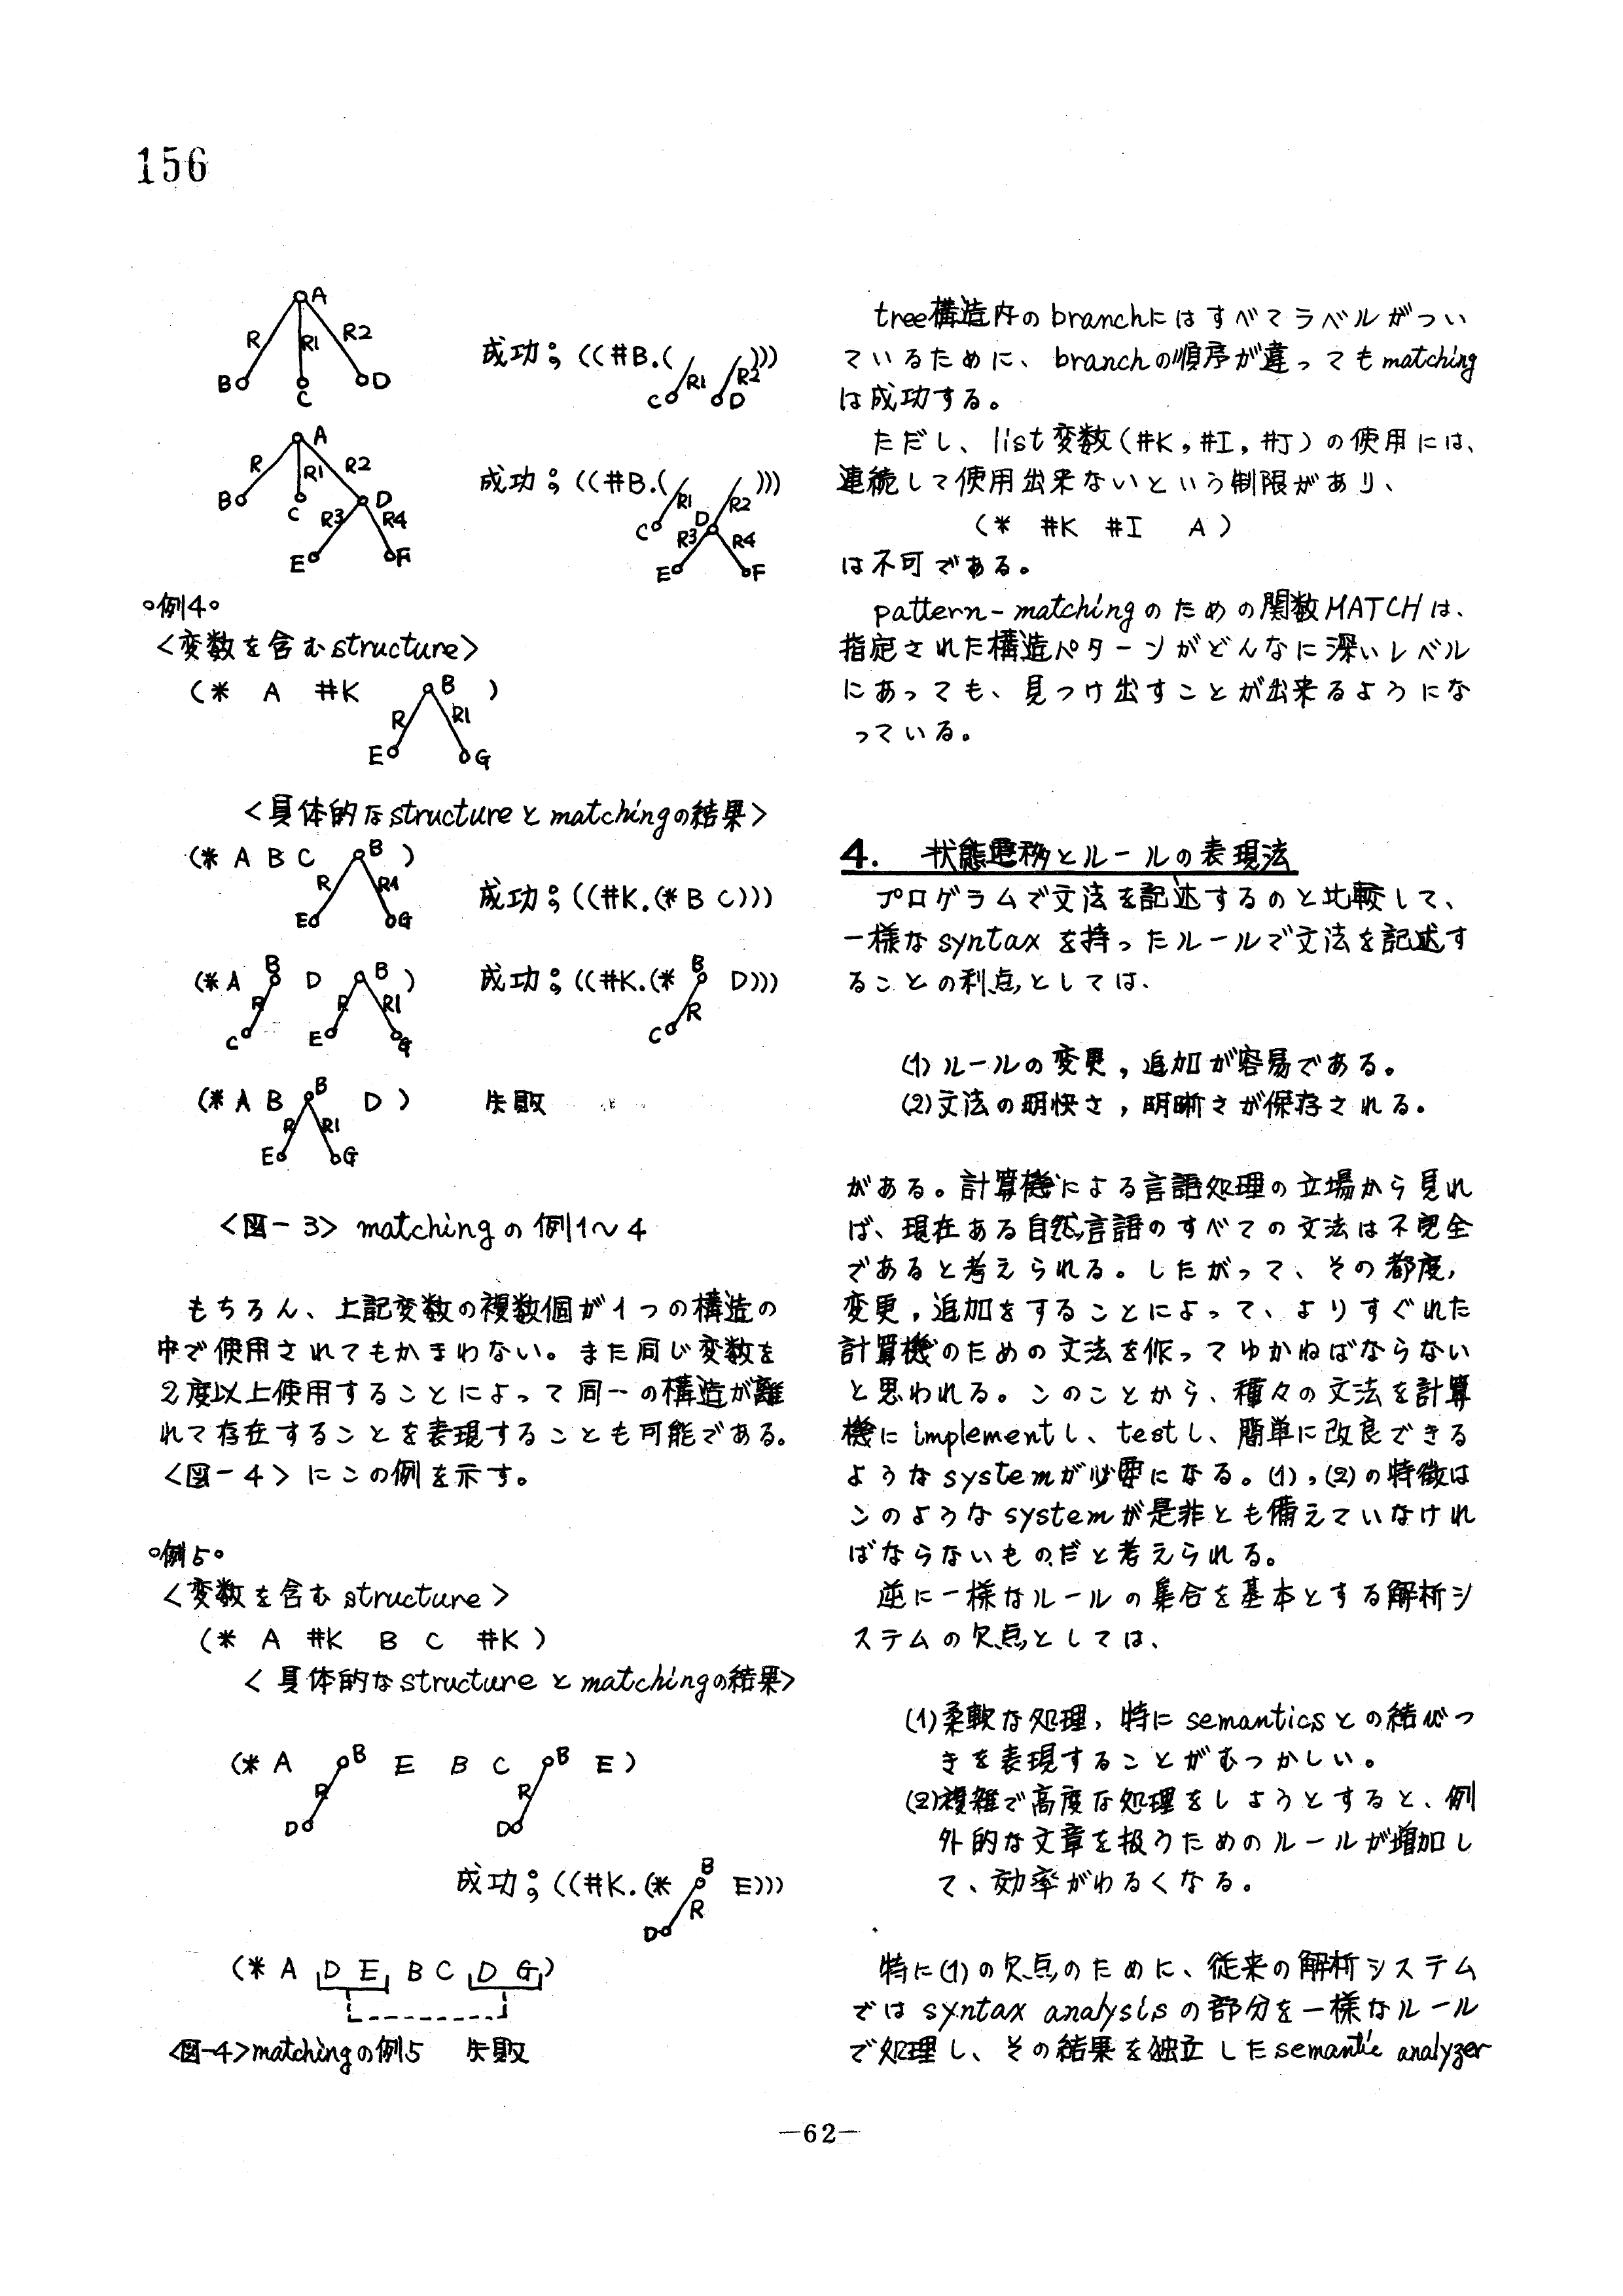 156
A
R R1 R2
B C D
成功；((#B.( R1 R2 )))
C D
A
R R1 R2
B C D
R3 R4
E F
成功；((#B.( R1 R2 )))
C D
R3 R4
E F
○例4○
<変数を含むstructure>
(* A #K B )
R R1
E G
<具体的なstructureとmatchingの結果>
(* A B C B )
R R1
E G
成功；((#K.(* B C)))
(* A B D B )
R R R1
C E G
成功；((#K.(* B D)))
R
C
(* A B B D )
R R1
E G
失敗
<図-3> matchingの例1～4
もちろん、上記変数の複数個が1つの構造の
中で使用されてもかまわない。また同じ変数を
2度以上使用することによって同一の構造が離
れて存在することを表現することも可能である。
<図-4>にこの例を示す。
○例5○
<変数を含むstructure>
(* A #K B C #K )
<具体的なstructureとmatchingの結果>
(* A B E B C B E )
R R
D D
成功；((#K.(* B E)))
R
D
(* A D E B C D G)
<図-4>matchingの例5 失敗
tree構造内のbranchにはすべてラベルがつい
ているために、branchの順序が違ってもmatching
は成功する。
ただし、list変数(#K,#I,#J)の使用には、
連続して使用出来ないという制限があり、
(* #K #I A )
は不可である。
pattern-matchingのための関数MATCHは、
指定された構造パターンがどんなに深いレベル
にあっても、見つけ出すことが出来るようにな
っている。
4. 状態遷移とルールの表現法
プログラムで文法を記述するのと比較して、
一様なsyntaxを持ったルールで文法を記述す
ることの利点としては、
(1)ルールの変更,追加が容易である。
(2)文法の明快さ,明晰さが保存される。
がある。計算機による言語処理の立場から見れ
ば、現在ある自然言語のすべての文法は不完全
であると考えられる。したがって、その都度,
変更,追加をすることによって、よりすぐれた
計算機のための文法を作ってゆかねばならない
と思われる。このことから、種々の文法を計算
機にimplementし、testし、簡単に改良できる
ようなsystemが必要になる。(1),(2)の特徴は
このようなsystemが是非とも備えていなけれ
ばならないものだと考えられる。
逆に一様なルールの集合を基本とする解析シ
ステムの欠点としては、
(1)柔軟な処理,特にsemanticsとの結びつ
きを表現することがむつかしい。
(2)複雑で高度な処理をしようとすると、例
外的な文章を扱うためのルールが増加し
て、効率がわるくなる。
特に(1)の欠点のために、従来の解析システム
ではsyntax analysisの部分を一様なルール
で処理し、その結果を独立したsemantic analyzer
-62-